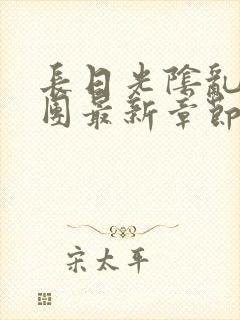 長日光陰亂
團最新章節
宋太平